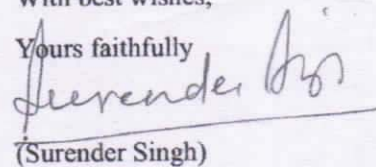 With best wishes,
Yours faithfully
Surender
(Surender Singh)